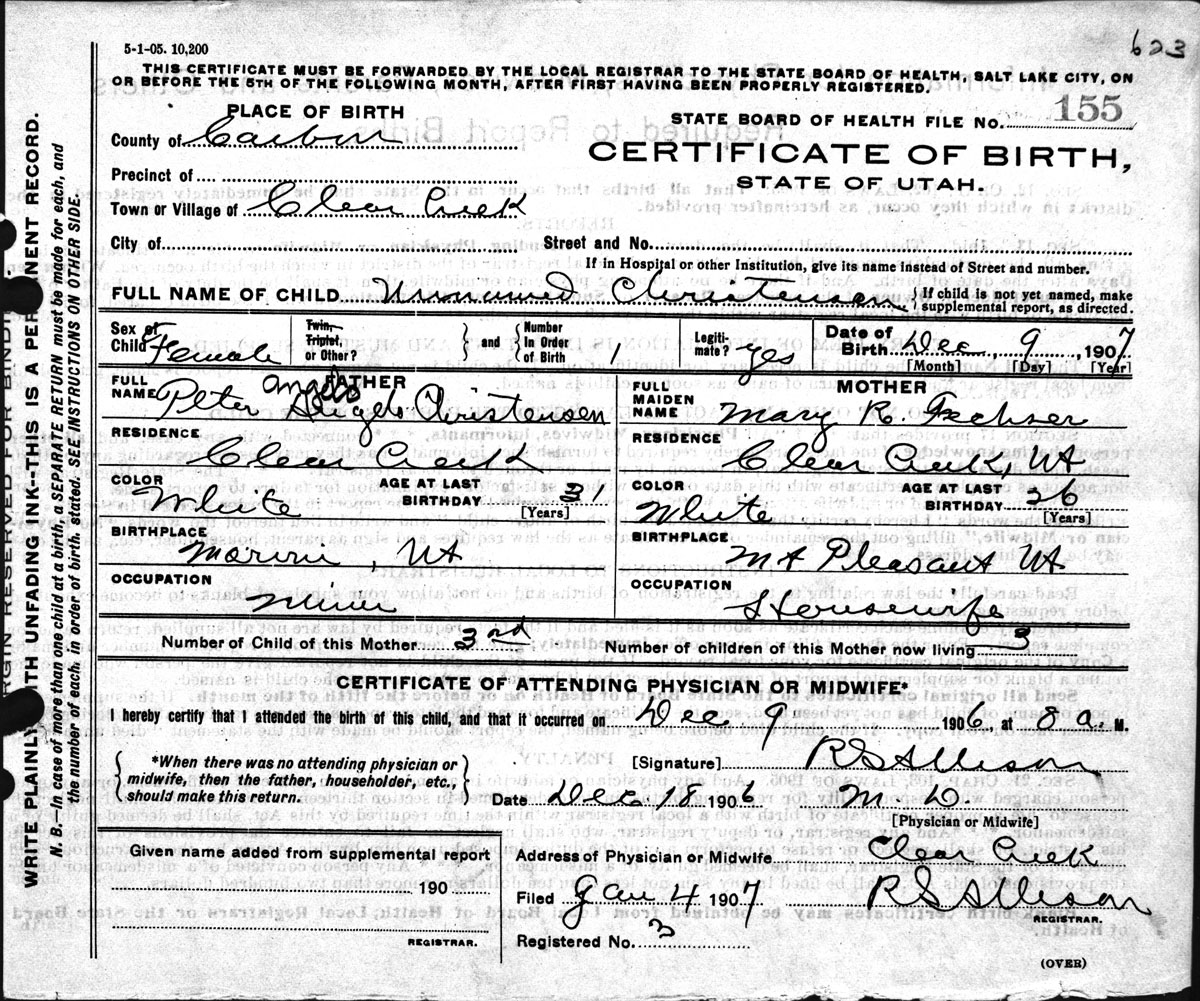 623
5-1-05. 10,200
THIS CERTIFICATE MUST BE FORWARDED BY THE LOCAL REGISTRAR TO THE STATE BOARD OF HEALTH, SALT LAKE CITY, ON
OR BEFORE THE 5TH OF THE FOLLOWING MONTH, AFTER FIRST HAVING BEEN PROPERLY REGISTERED.
PLACE OF BIRTH
County of Carbon
Precinct of
Town or Village of Clear Creek
STATE BOARD OF HEALTH FILE No. 155
CERTIFICATE OF BIRTH,
STATE OF UTAH.
City of Street and No.
If in Hospital or other Institution, give its name instead of Street and number.
FULL NAME OF CHILD Unnamed Christensen { If child is not yet named, make
supplemental report, as directed.
Sex of Child Female
Twin, Triplet, or Other? } and { Number In Order of Birth 1
Legiti-mate? yes
Date of Birth Dec 9, 1907
[Month] [Day] [Year]
FATHER
FULL NAME Peter Angelo Christensen
RESIDENCE Clear Creek
COLOR White AGE AT LAST BIRTHDAY 31
[Years]
BIRTHPLACE Ut
OCCUPATION Miner
MOTHER
FULL MAIDEN NAME Mary R.
RESIDENCE Clear Creek Ut
COLOR White AGE AT LAST BIRTHDAY 26
[Years]
BIRTHPLACE Mt Pleasant Ut
OCCUPATION Housewife
Number of Child of this Mother 3rd Number of children of this Mother now living 3
CERTIFICATE OF ATTENDING PHYSICIAN OR MIDWIFE*
I hereby certify that I attended the birth of this child, and that it occurred on Dec 9 1906, at 8 a. M.
{ *When there was no attending physician or
midwife, then the father, householder, etc.,
should make this return. }
[Signature] R S Allison
Date Dec. 18 1906 M. D.
[Physician or Midwife]
Given name added from supplemental report
190
REGISTRAR.
Address of Physician or Midwife Clear Creek
Filed Jan 4 1907 R S Allison
REGISTRAR.
Registered No. 3
(OVER)
WRITE PLAINLY WITH UNFADING INK--THIS IS A PERMANENT RECORD.
N. B.—In case of more than one child at a birth, a SEPARATE RETURN must be made for each, and
the number of each, in order of birth, stated. SEE INSTRUCTIONS ON OTHER SIDE.